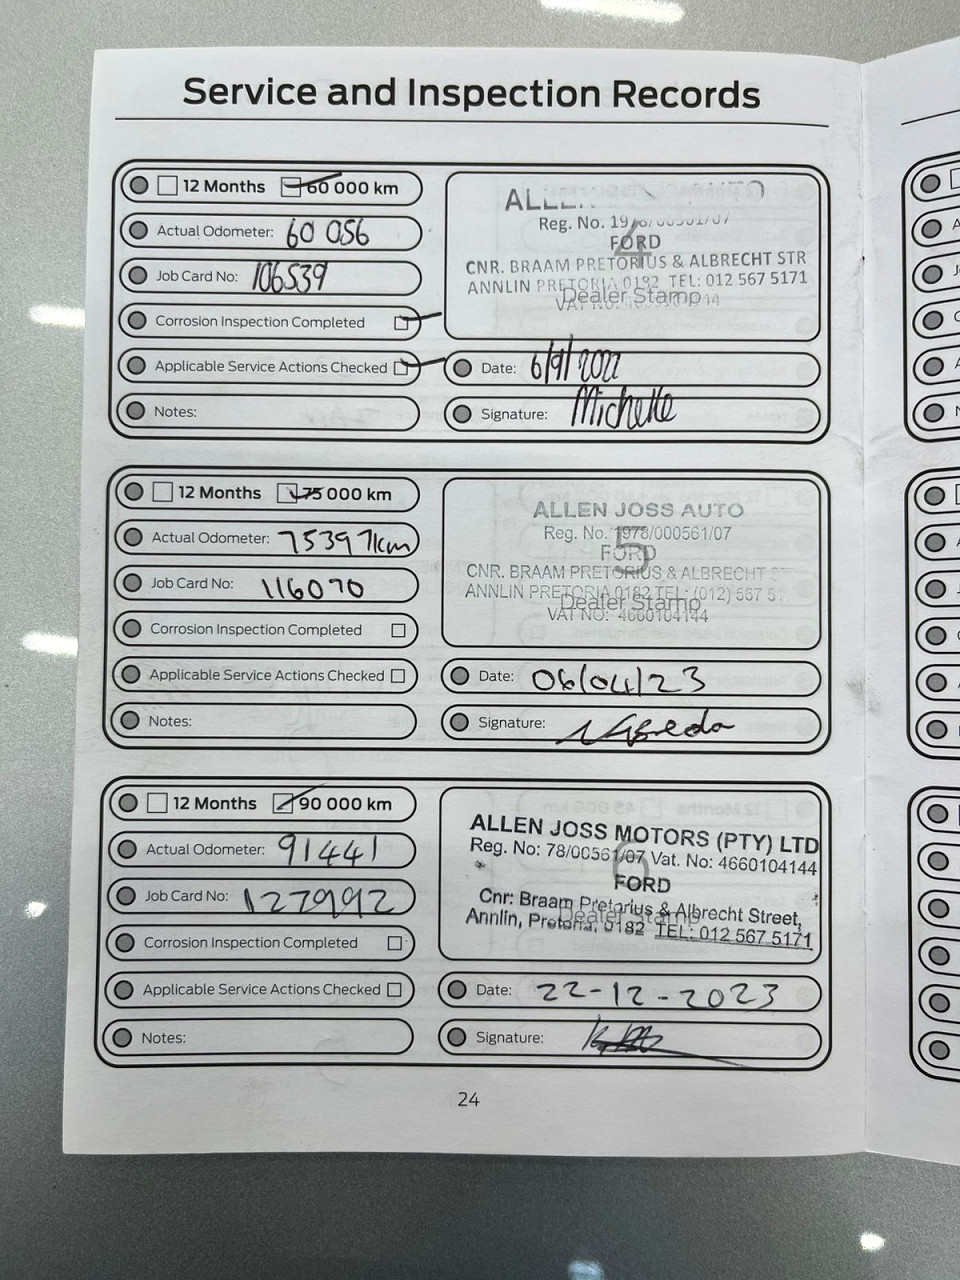 Service and Inspection Records
12 Months 60 000 km
Actual Odometer: 60 056
Job Card No: 106539
Corrosion Inspection Completed
Applicable Service Actions Checked
Notes:
AUTO
Reg. No.
4
FORD
CNR. BRAAM PRETORIUS & ALBRECHT STR
ANNLIN PRETORIA 0182 TEL: 012 567 5171
Dealer Stamp
VAT NO:
Date: 6/9/2022
Signature: Michelle
12 Months 75 000 km
Actual Odometer: 75397km
Job Card No: 116070
Corrosion Inspection Completed
Applicable Service Actions Checked
Notes:
ALLEN JOSS AUTO
Reg. No. 1978/000561/07
5
FORD
CNR. BRAAM PRETORIUS & ALBRECHT
ANNLIN PRETORIA 0182 TEL: (012) 567
Dealer Stamp
VAT NO: 4660104144
Date: 06/04/23
Signature:
12 Months 90 000 km
Actual Odometer: 91441
Job Card No: 127992
Corrosion Inspection Completed
Applicable Service Actions Checked
Notes:
ALLEN JOSS MOTORS (PTY) LTD
Reg. No: 78/00561/07 Vat. No: 4660104144
6
FORD
Cnr: Braam Pretorius & Albrecht Street,
Dealer Stamp
Annlin, Pretoria, 0182 TEL: 012 567 5171
Date: 22-12-2023
Signature:
24